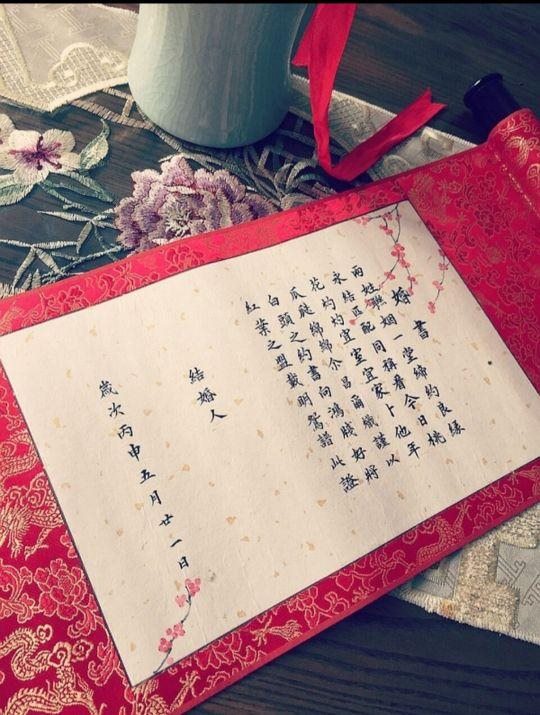 婚書
兩姓聯姻一堂締約良緣
永結匹配同稱看今日桃
花灼灼宜室宜家卜他年
瓜瓞綿綿尒昌爾熾謹以
白頭之約書向鴻牋好將
紅葉之盟載明鴛譜此證
結婚人
歲次丙申五月廿一日